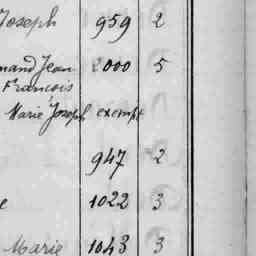 Joseph 959 2
mand Jean 2000 5
Francois
Marie Joseph exempt
947 2
e 1022 3
Marie 1043 3